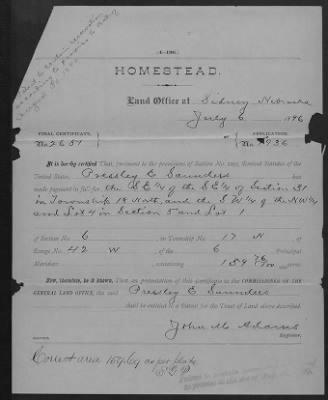 (4-196.)
HOMESTEAD.
Land Office at Sidney Nebraska
July 6 1896
FINAL CERTIFICATE,
No. 2651
APPLICATION,
No.
It is hereby certified That, pursuant to the provisions of Section No. 2291, Revised Statutes of the
United States, Pressley E Saunders has
made payment in full for the S.E ¼ of the S.E ¼ of Section 31
in Township 18 North, and the S W ¼ of the N W ¼
and Lot 4 in Section 5 and Lot 1
of Section No. 6 in Township No. 17 N, of
Range No. 42 W of the 6 Principal
Meridian containing 159 76/100 acres.
Now, therefore, be it known, That on presentation of this Certificate to the COMMISSIONER OF THE
GENERAL LAND OFFICE, the said Pressley E Saunders
shall be entitled to a Patent for the Tract of Land above described.
John M. Adams
Register.
Correct area as per plats